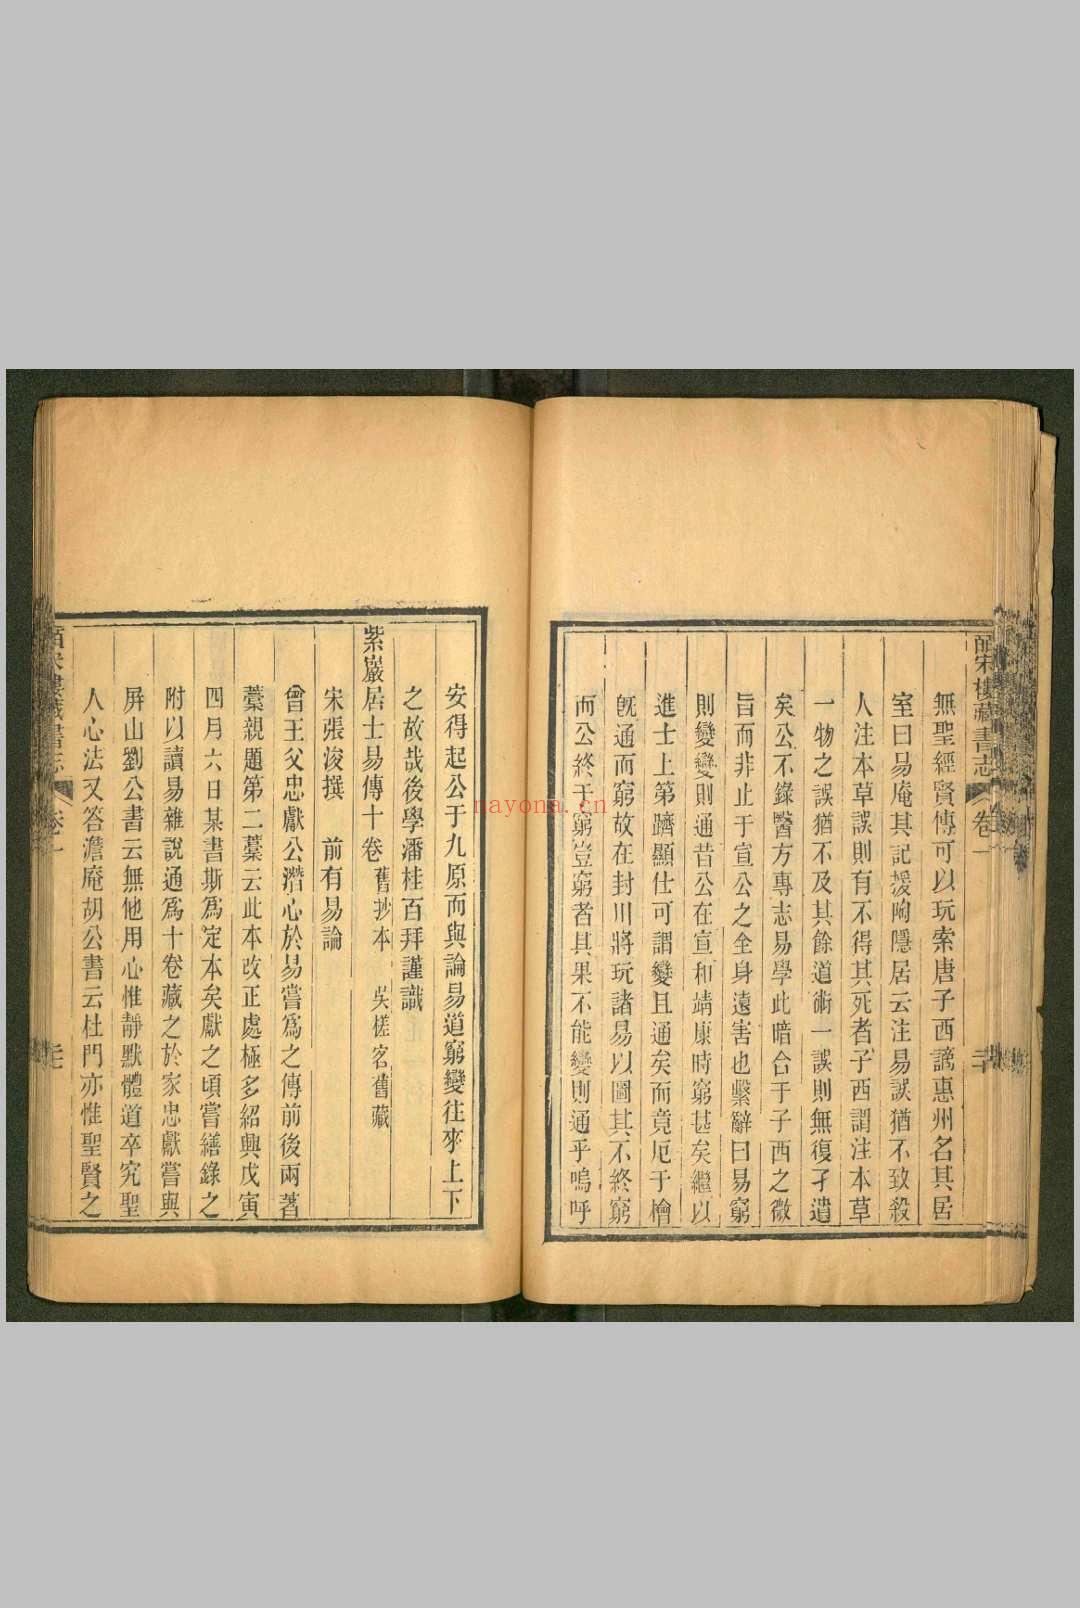 皕宋樓藏書志 卷一 二十
無聖經賢傳可以玩索唐子西謫惠州名其居
室曰易庵其記援陶隱居云注易誤猶不致殺
人注本草誤則有不得其死者子西謂注本草
一物之誤猶不及其餘道術一誤則無復孑遺
矣公不錄醫方專志易學此暗合于子西之微
旨而非止于宣公之全身遠害也繫辭曰易窮
則變變則通昔公在宣和靖康時窮甚矣繼以
進士上第躋顯仕可謂變且通矣而竟厄于檜
旣通而窮故在封川將玩諸易以圖其不終窮
而公終于窮豈窮者其果不能變則通乎嗚呼
安得起公于九原而與論易道窮變往來上下
之故哉後學潘桂百拜謹識
紫巖居士易傳十卷 舊抄本 吳槎客舊藏
宋張浚撰 前有易論
曾王父忠獻公潛心於易嘗爲之傳前後兩著
藁親題第二藁云此本改正處極多紹興戊寅
四月六日某書斯爲定本矣獻之頃嘗繕錄之
附以讀易雜說通爲十卷藏之於家忠獻嘗與
屏山劉公書云無他用心惟靜默體道卒究聖
人心法又答澹庵胡公書云杜門亦惟聖賢之
皕宋樓藏書志 卷一
nayona.cn